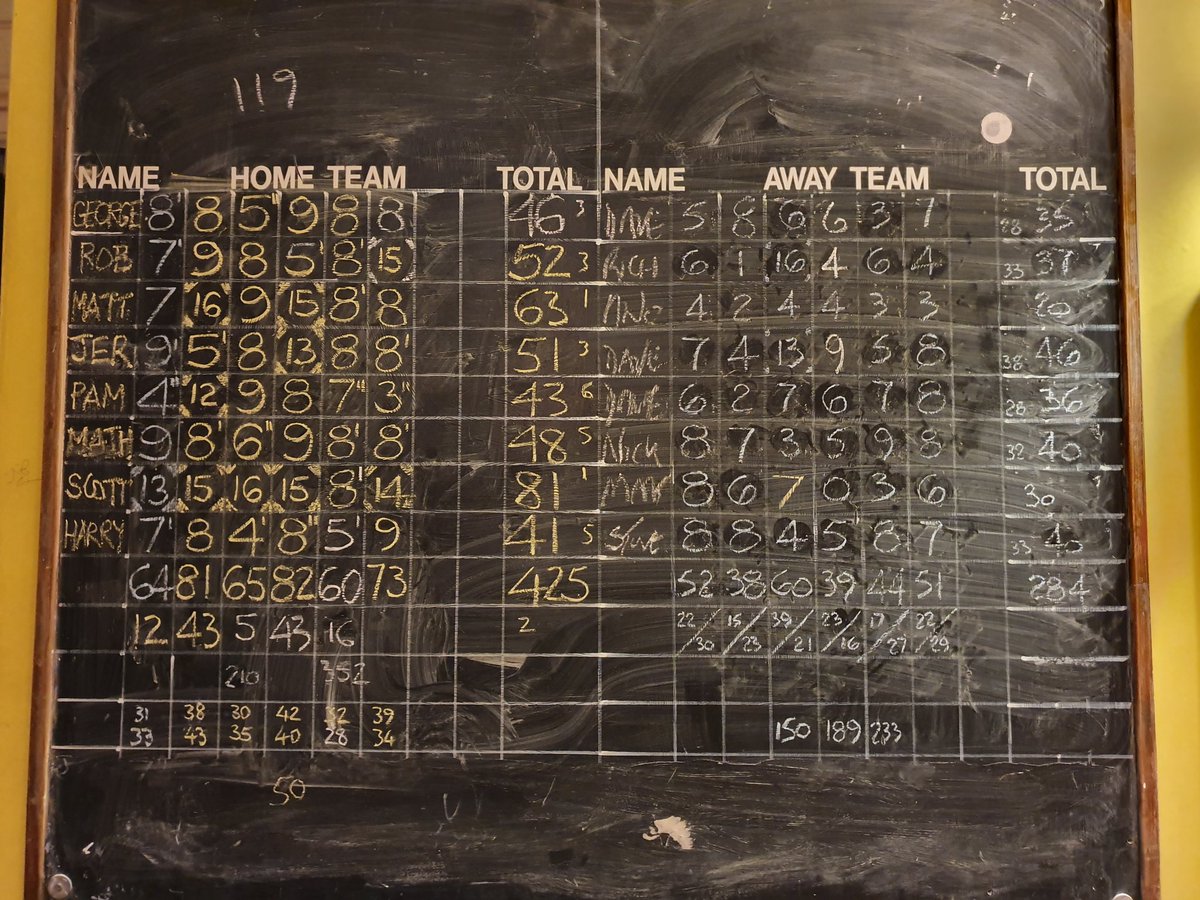 119
NAME HOME TEAM TOTAL NAME AWAY TEAM TOTAL
GEORGE 8' 8 5" 9 8 8 46 3 DAVE 5 8 6 6 3 7 28 35
ROB 7' 9 8 5' 8' 15 52 3 RICH 6 1 16 4 6 4 33 37
MATT 7 16 9 15 8' 8 63 1 4 2 4 4 3 3 20
JER 9' 5' 8 13 8 8' 51 3 DAVE 7 4 13 9 5 8 38 46
PAM 4" 12 9 8 7" 3" 43 6 DAVE 6 2 7 6 7 8 28 36
MATH 9 8' 6" 9 8' 8' 48 5 NICK 8 7 3 5 9 8 32 40
SCOTT 13 15 16 15 8' 14 81 1 8 6 7 0 3 6 30
HARRY 7' 8 4' 8" 5' 9 41 5 STEVE 8 8 4 5 8 7 33 40
64 81 65 82 60 73 425 52 38 60 39 44 51 284
12 43 5 43 16 2 22/30 15/23 39/21 23/16 17/27 22/29
1 210 352
31 38 30 42 32 39
33 43 35 40 28 34 150 189 233
50